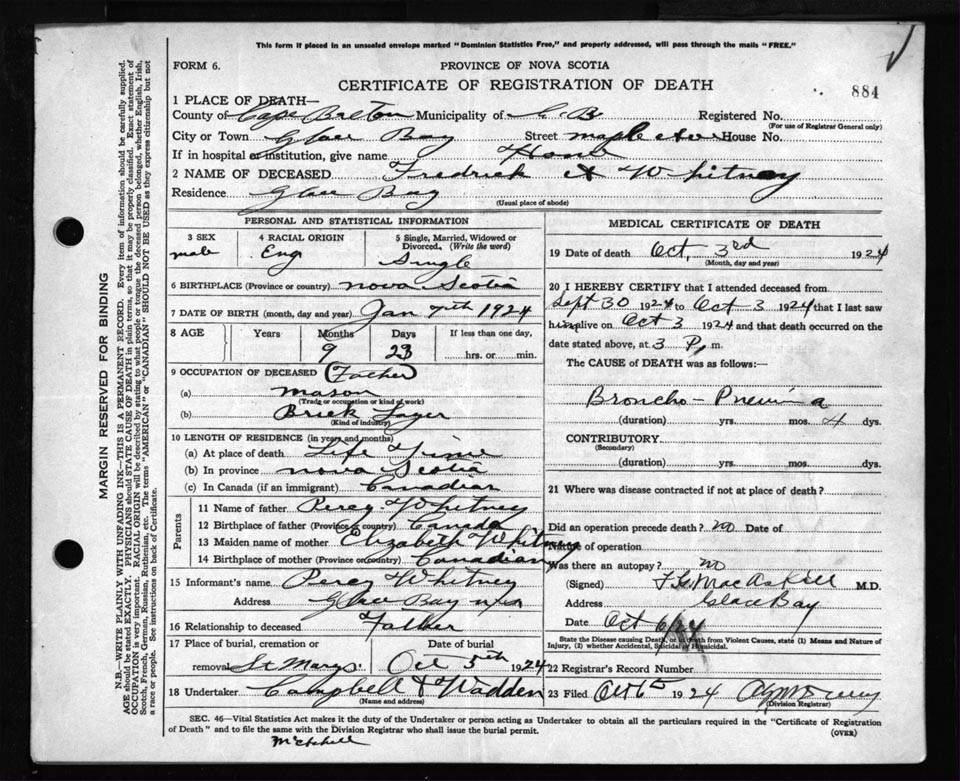 This form if placed in an unsealed envelope marked "Dominion Statistics Free," and properly addressed, will pass through the mails "FREE."
FORM 6.
PROVINCE OF NOVA SCOTIA
CERTIFICATE OF REGISTRATION OF DEATH
884
1 PLACE OF DEATH—
County of Cape Breton Municipality of C. B. Registered No.
(For use of Registrar General only)
City or Town Glace Bay Street maple House No.
If in hospital or institution, give name Home
2 NAME OF DECEASED Fredrick Whitney
Residence Glace Bay
(Usual place of abode)
PERSONAL AND STATISTICAL INFORMATION
3 SEX male
4 RACIAL ORIGIN Eng
5 Single, Married, Widowed or Divorced. (Write the word) Single
6 BIRTHPLACE (Province or country) nova Scotia
7 DATE OF BIRTH (month, day and year) Jan 7th 1924
8 AGE Years Months Days If less than one day,
9 23 hrs. or min.
9 OCCUPATION OF DECEASED (Father)
(a) mason
(Trade or occupation or kind of work)
(b) Brick Layer
(Kind of industry)
10 LENGTH OF RESIDENCE (in years and months)
(a) At place of death Life Time
(b) In province nova Scotia
(c) In Canada (if an immigrant) Canadian
Parents
11 Name of father Percy Whitney
12 Birthplace of father (Province or country) Canada
13 Maiden name of mother Elizabeth Whitney
14 Birthplace of mother (Province or country) Canadian
15 Informant's name Percy Whitney
Address Glace Bay
16 Relationship to deceased Father
17 Place of burial, cremation or removal St Marys Date of burial Oct 5th 1924
18 Undertaker Campbell & Wadden
(Name and address)
MEDICAL CERTIFICATE OF DEATH
19 Date of death Oct, 3rd 1924
(Month, day and year)
20 I HEREBY CERTIFY that I attended deceased from
Sept 30 1924 to Oct 3 1924 that I last saw
him alive on Oct 3 1924 and that death occurred on the
date stated above, at 3 P. m.
The CAUSE OF DEATH was as follows:—
Broncho-
(duration) yrs. mos. 4 dys.
CONTRIBUTORY
(Secondary)
(duration) yrs. mos. dys.
21 Where was disease contracted if not at place of death?
Did an operation precede death? no Date of
Nature of operation
Was there an autopsy? no
(Signed) MacAskill M.D.
Address Glace Bay
Date Oct 6/24
State the Disease causing Death, or in death from Violent Causes, state (1) Means and Nature of Injury, (2) whether Accidental, Suicidal or Homicidal.
22 Registrar's Record Number
23 Filed Oct 6th 1924
(Division Registrar)
SEC. 46—Vital Statistics Act makes it the duty of the Undertaker or person acting as Undertaker to obtain all the particulars required in the "Certificate of Registration
of Death" and to file the same with the Division Registrar who shall issue the burial permit.
(OVER)
MARGIN RESERVED FOR BINDING
N.B.—WRITE PLAINLY WITH UNFADING INK—THIS IS A PERMANENT RECORD. Every item of information should be carefully supplied.
AGE should be stated EXACTLY. PHYSICIANS should STATE CAUSE OF DEATH in plain terms, so that it may be properly classified. Exact statement of
OCCUPATION is very important. RACIAL ORIGIN will be described by stating to what people or tongue the deceased person belonged, whether English, Irish,
Scotch, French, German, Russian, Ruthenian, etc. The terms "AMERICAN" or "CANADIAN" SHOULD NOT BE USED as they express citizenship but not
a race or people. See instructions on back of Certificate.